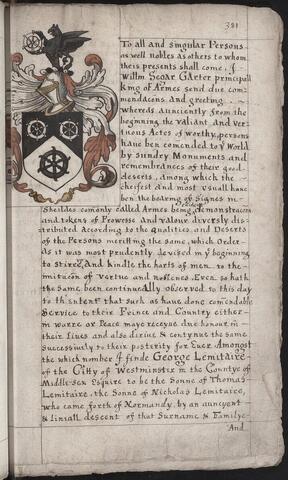 381
To all and singular Persons
as well nobles as others to whom
theis presents shall come. I
Willm Segar GArter principall
king of Armes send due com-
mendacons and greeting.
whereas aunciently from the
beginning the valiant and ver-
tuous Actes of worthy persons
haue ben comended to ye World
by sundry Monuments and
remembrances of their good
deserts, among which the
cheifest and most vsuall haue
ben the bearing of Signes in
Sheildes comonly called Armes being demonstracons
and tokens of Prowesse and valour diversly dis-
tributed According to the qualities and Deserts
of the Persons meriting the same, which Order
as it was most prudently devised in ye beginning
to stirre, and kindle the harts of men to the
imitacon of vertue and noblenes. Even so hath
the same been continually observed to this day
to th entent that such as haue done comendable
Service to their Prince and Country either
in warre or Peace maye receyue due honour in
their Liues and also derive & contynue the same
Successively to their posterity for Euer Amongst
the which nomber I finde George Lemitaire
of the Citty of Westminster in the Countye of
Middlesex Esquire to be the Sonne of Thomas
Lemitaire, the Sonne of Nicholas Lemitaire,
who came forth of Normandy, by an auncyent
& lineall descent of that Surname & Familye
And